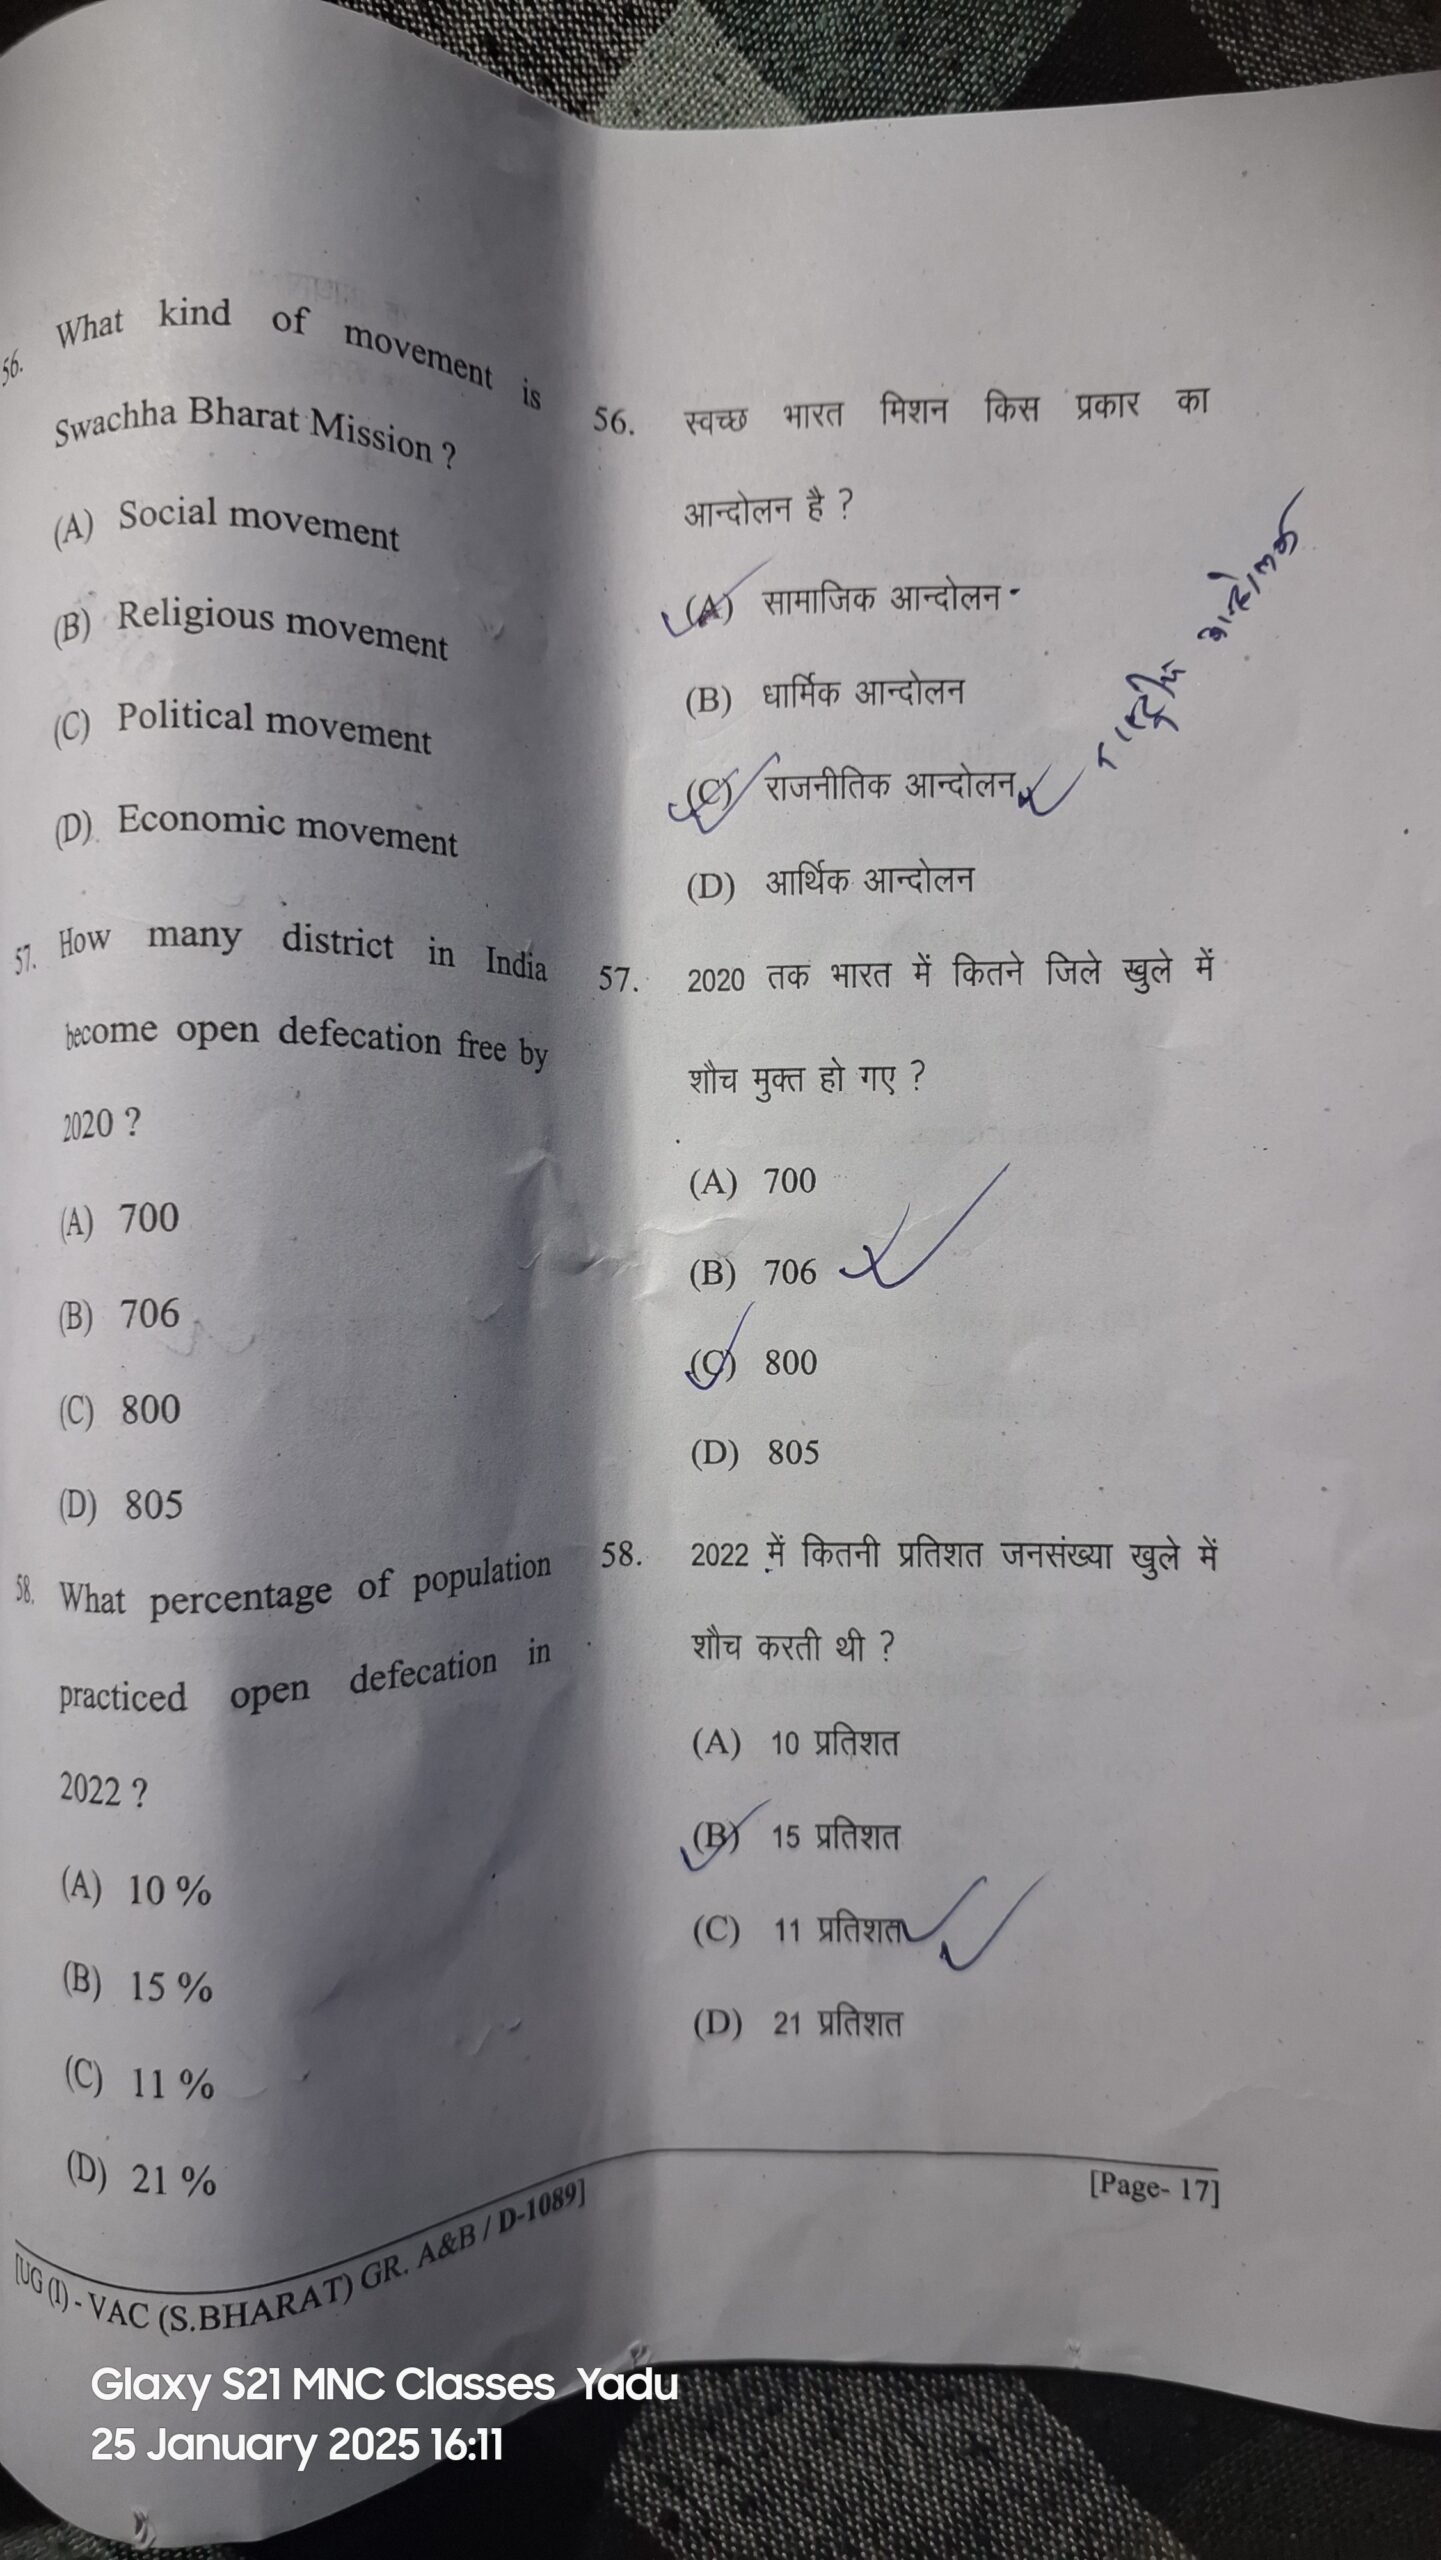 56. What kind of movement is
Swachha Bharat Mission ?
(A) Social movement
(B) Religious movement
(C) Political movement
(D) Economic movement
57. How many district in India
become open defecation free by
2020 ?
(A) 700
(B) 706
(C) 800
(D) 805
58. What percentage of population
practiced open defecation in
2022 ?
(A) 10 %
(B) 15 %
(C) 11 %
(D) 21 %
56. स्वच्छ भारत मिशन किस प्रकार का
आन्दोलन है ?
(A) सामाजिक आन्दोलन
(B) धार्मिक आन्दोलन
(C) राजनीतिक आन्दोलन
(D) आर्थिक आन्दोलन
57. 2020 तक भारत में कितने जिले खुले में
शौच मुक्त हो गए ?
(A) 700
(B) 706
(C) 800
(D) 805
58. 2022 में कितनी प्रतिशत जनसंख्या खुले में
शौच करती थी ?
(A) 10 प्रतिशत
(B) 15 प्रतिशत
(C) 11 प्रतिशत
(D) 21 प्रतिशत
[UG (I) - VAC (S.BHARAT) GR. A&B / D-1089]
[Page- 17]
Glaxy S21 MNC Classes Yadu
25 January 2025 16:11